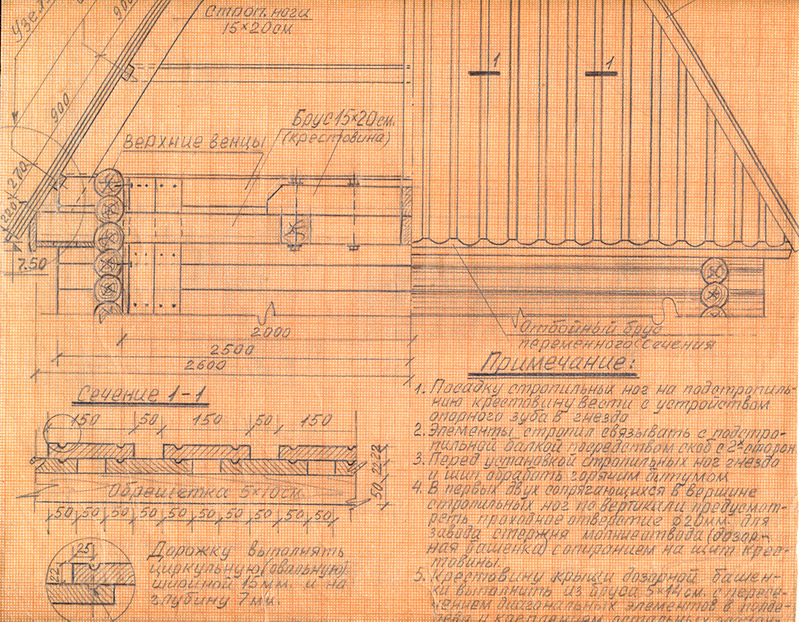 Узел
900
900
Строп. ноги
15×20см
1
1
Верхние венцы
Брус 15×20см.
(крестовина)
220
270
750
2000
2500
2600
Отбойный брус
переменного сечения
Сечение 1-1
150 50 150 50 150
22 22
50
Обрешетка 5×10см.
50 50 50 50 50 50 50 50 50
25
22
Дорожку выполнять
циркульную (овальную)
шириной 15мм. и на
глубину 7мм.
Примечание:
1. Посадку стропильных ног на подстропиль-
нию крестовину вести с устройством
опорного зуба в гнездо
2. Элементы стропил связывать с подстро-
пильной балкой посредством скоб с 2х сторон
3. Перед установкой стропильных ног гнездо
и шип обработь горячим битумом
4. В первых двух сопрягающихся в вершине
стропильных ног по вертикали предусмот-
реть проходное отверстие ф20мм. для
завода стержня молниеотвода (дозор-
ная башенка) с опиранием на шит крес-
товины.
5. Крестовину крыши дозорной башен-
ки выполнить из бруса 5×14см. с пересе-
чением диагональных элементов в полде-
рева и креплением остальных